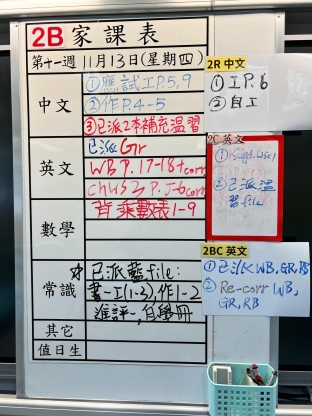 2B 家課表
第十一週 11月13日(星期四)
中文
①應試工P.5,9
②作P.4-5
③已派2本補充温習
英文
已派Gr
WB P.17-18+corr
數學
背乘數表1-9
常識
已派藍file:
書-工(1-3),作1-2
進評~,自學冊
其它
值日生
2R 中文
①工P.6
②自工
2C 英文
②已派温
習file
2BC 英文
①已派WB,GR,RB
②Re-corr WB,
GR,RB